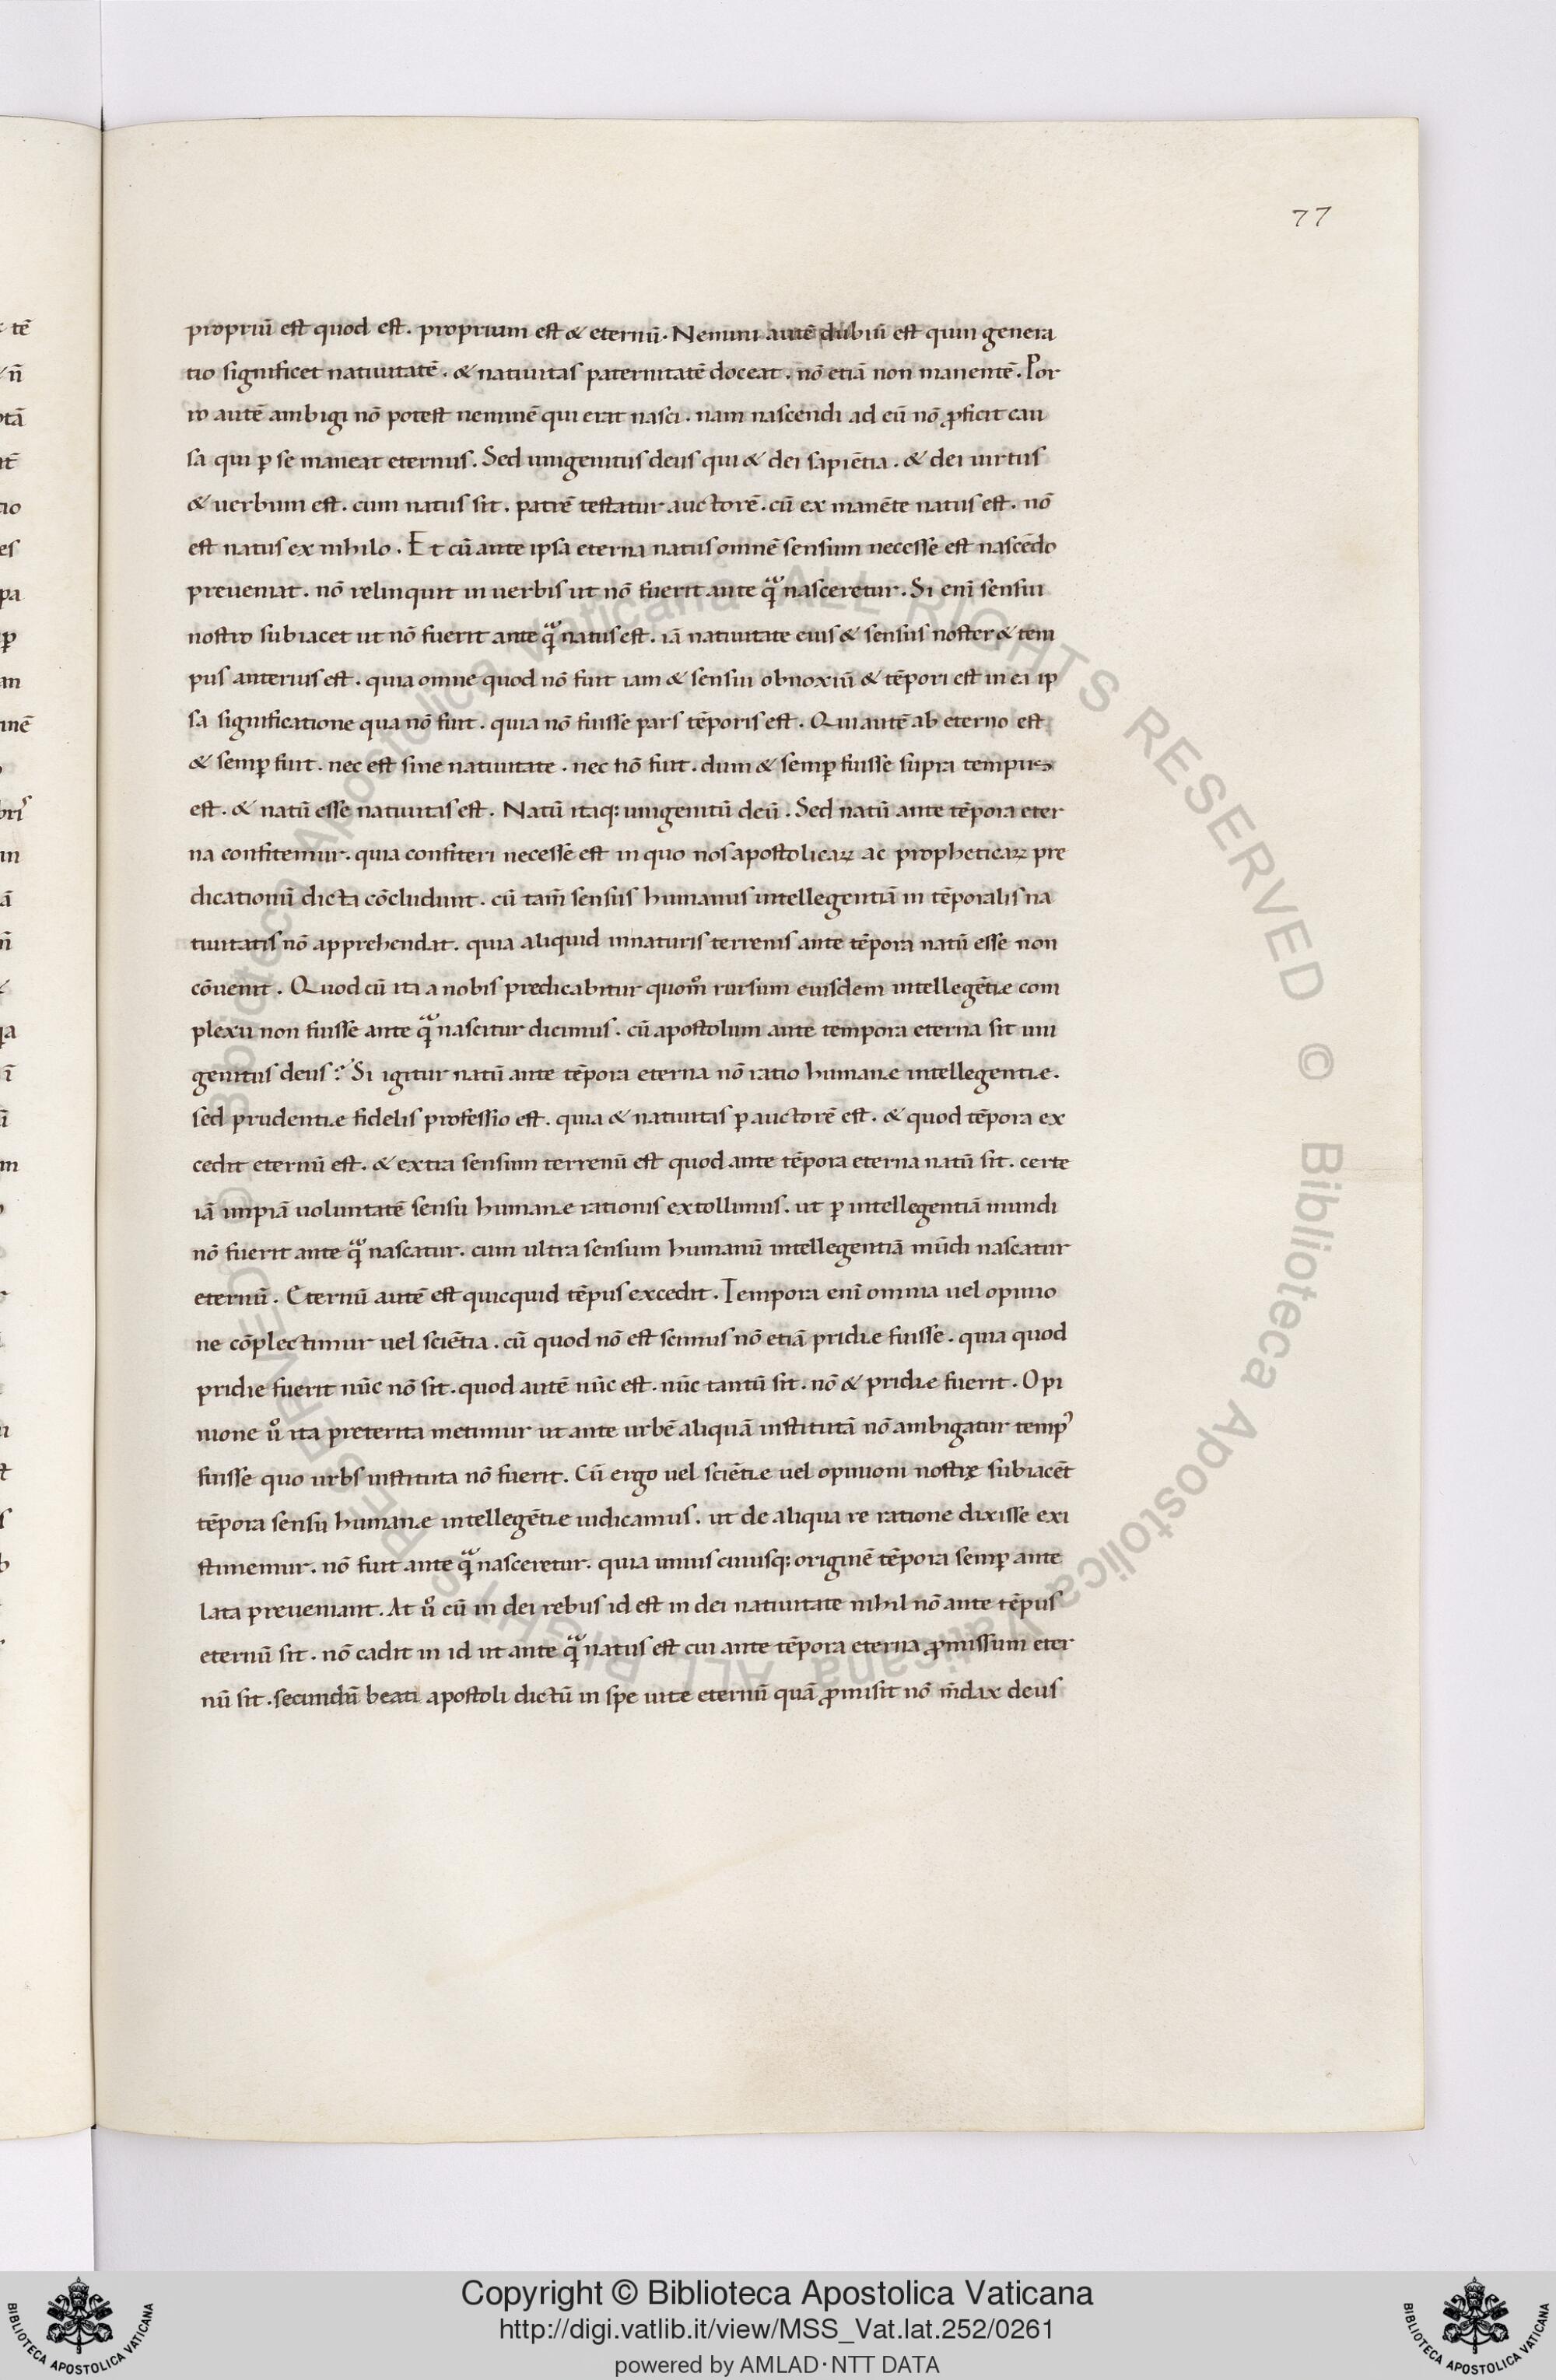 77
propriū est quod est. proprium est & eternū. Nemini autē dubiū est quin genera
tio significet natiuitatē. & natiuitas paternitatē doceat. nō etiā non manentē. Por
ro autē ambigi nō potest neminē qui erat nasci. nam nascendi ad eū nō ꝓficit cau
sa qui ꝑ se maneat eternus. Sed unigenitus deus qui & dei sapiētia. & dei uirtus
& uerbum est. cum natus sit. patrē testatur auctorē. cū ex manēte natus est. nō
est natus ex nihilo. Et cū ante ipsa eterna natus omnē sensum necesse est nascēdo
preueniat. nō relinquit in uerbis ut nō fuerit ante qᷓ nasceretur. Si enī sensui
nostro subiacet ut nō fuerit ante qᷓ natus est. iā natiuitate eius & sensus noster & tem
pus anterius est. quia omne quod nō fuit iam & sensui obnoxiū & tēpori est in ea ip
sa significatione qua nō fuit. quia nō fuisse pars tēporis est. Qui autē ab eterno est
& semꝑ fuit. nec est sine natiuitate. nec nō fuit. dum & semꝑ fuisse supra tempus
est. & natū esse natiuitas est. Natū itaq: unigenitū deū. Sed natū ante tēpora eter
na confitemur. quia confiteri necesse est in quo nos apostolicaꝝ ac propheticaꝝ pre
dicationū dicta cōcludunt. cū tam̄ sensus humanus intellegentiā in tēporalis na
tiuitatis nō apprehendat. quia aliquid in naturis terrenis ante tēpora natū esse non
cōuenit. Quod cū ita a nobis predicabitur quom̊ rursum eiusdem intellegētie com
plexu non fuisse ante qᷓ nascitur dicimus. cū apostolum ante tempora eterna sit uni
genitus deus? Si igitur natū ante tēpora eterna nō ratio humane intellegentie.
sed prudentie fidelis professio est. quia & natiuitas ꝑ auctorē est. & quod tēpora ex
cedit eternū est. & extra sensum terrenū est quod ante tēpora eterna natū sit. certe
iā impiā uoluntatē sensu humane rationis extollimus. ut ꝑ intellegentiā mundi
nō fuerit ante qᷓ nascatur. cum ultra sensum humanū intellegentiā mūdi nascatur
eternū. Eternū autē est quicquid tēpus excedit. Tempora enī omnia uel opinio
ne cōplectimur uel sciētia. cū quod nō est scimus nō etiā pridie fuisse. quia quod
pridie fuerit nūc nō sit. quod autē nūc est. nūc tantū sit. nō & pridie fuerit. Opi
nione ů ita preterita metimur ut ante urbē aliquā institutā nō ambigatur tempꝰ
fuisse quo urbs instituta nō fuerit. Cū ergo uel sciētie uel opinioni nostrę subiacēt
tēpora sensu humane intellegētie iudicamus. ut de aliqua re ratione dixisse exi
stimemur. nō fuit ante qᷓ nasceretur. quia unius cuiusq: originē tēpora semꝑ ante
lata preueniant. At ů cū in dei rebus id est in dei natiuitate nihil nō ante tēpus
eternū sit. nō cadit in id ut ante qᷓ natus est cui ante tēpora eterna ꝓmissum eter
nū sit. secundū beati apostoli dictū in spe uite eternū quā ꝓmisit nō m̄dax deus
Copyright © Biblioteca Apostolica Vaticana
http://digi.vatlib.it/view/MSS_Vat.lat.252/0261
powered by AMLAD·NTT DATA